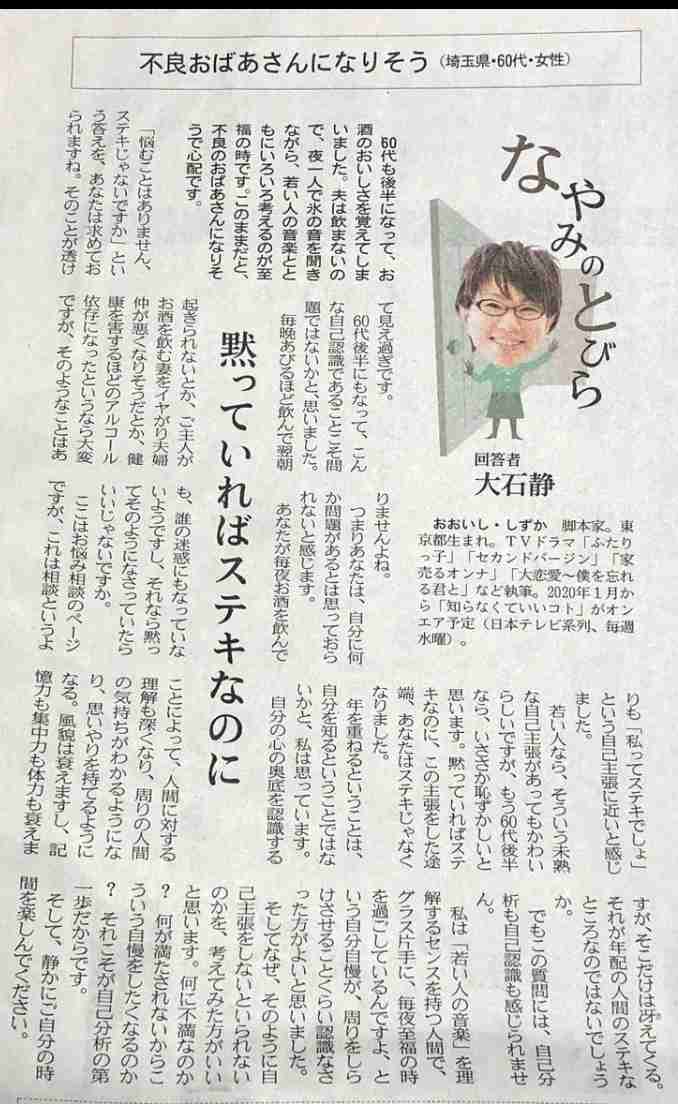 不良おばあさんになりそう（埼玉県・60代・女性）
なやみのとびら
回答者
大石静
おおいし・しずか　脚本家。東
京都生まれ。ＴＶドラマ「ふたり
っ子」「セカンドバージン」「家
売るオンナ」「大恋愛〜僕を忘れ
る君と」など執筆。2020年１月か
ら「知らなくていいコト」がオン
エア予定（日本テレビ系列、毎週
水曜）。
60代も後半になって、お
酒のおいしさを覚えてしま
いました。夫は飲まないの
で、夜一人で氷の音を聞き
ながら、若い人の音楽とと
もにいろいろ考えるのが至
福の時です。このままだと、
不良のおばあさんになりそ
うで心配です。
黙っていればステキなのに
「悩むことはありません、
ステキじゃないですか」とい
う答えを、あなたは求めてお
られますね。そのことが透け
て見え過ぎです。
60代後半にもなって、こん
な自己認識であることこそ問
題ではないかと、思いました。
毎晩あびるほど飲んで翌朝
起きられないとか、ご主人が
お酒を飲む妻をイヤがり夫婦
仲が悪くなりそうだとか、健
康を害するほどのアルコール
依存になったというなら大変
ですが、そのようなことはあ
りませんよね。
つまりあなたは、自分に何
か問題があるとは思っておら
れないと感じます。
あなたが毎夜お酒を飲んで
も、誰の迷惑にもなっていな
いようですし、それなら黙っ
てそのようになさっていたら
いいじゃないですか。
ここはお悩み相談のページ
ですが、これは相談というよ
りも「私ってステキでしょ」
という自己主張に近いと感じ
ました。
若い人なら、そういう未熟
な自己主張があってもかわい
らしいですが、もう60代後半
なら、いささか恥ずかしいと
思います。黙っていればステ
キなのに、この主張をした途
端、あなたはステキじゃなく
なりました。
年を重ねるということは、
自分を知るということではな
いかと、私は思っています。
自分の心の奥底を認識する
ことによって、人間に対する
理解も深くなり、周りの人間
の気持ちがわかるようにな
り、思いやりを持てるように
なる。風貌は衰えますし、記
憶力も集中力も体力も衰えま
すが、そこだけは冴えてくる。
それが年配の人間のステキな
ところなのではないでしょう
か。
でもこの質問には、自己分
析も自己認識も感じられませ
ん。
私は「若い人の音楽」を理
解するセンスを持つ人間で、
グラス片手に、毎夜至福の時
を過ごしているんですよ、と
いう自分自慢が、周りをしら
けさせることくらい認識なさ
った方がよいと思いました。
そしてなぜ、そのように自
己主張をしないといられない
のかを、考えてみた方がいい
と思います。何に不満なのか
？　何が満たされないからこ
ういう自慢をしたくなるのか
？　それこそが自己分析の第
一歩だからです。
そして、静かにご自分の時
間を楽しんでください。